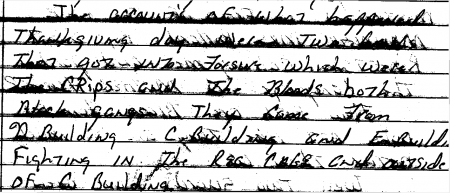 The accounts of what happened
Thanksgiving day were Two bands
That got into Forsure which were
The CRips and The Bloods both
Black gangs They came From
D Building C Building and E Build
Fighting IN The Rec CAGE and outside
OF C Building